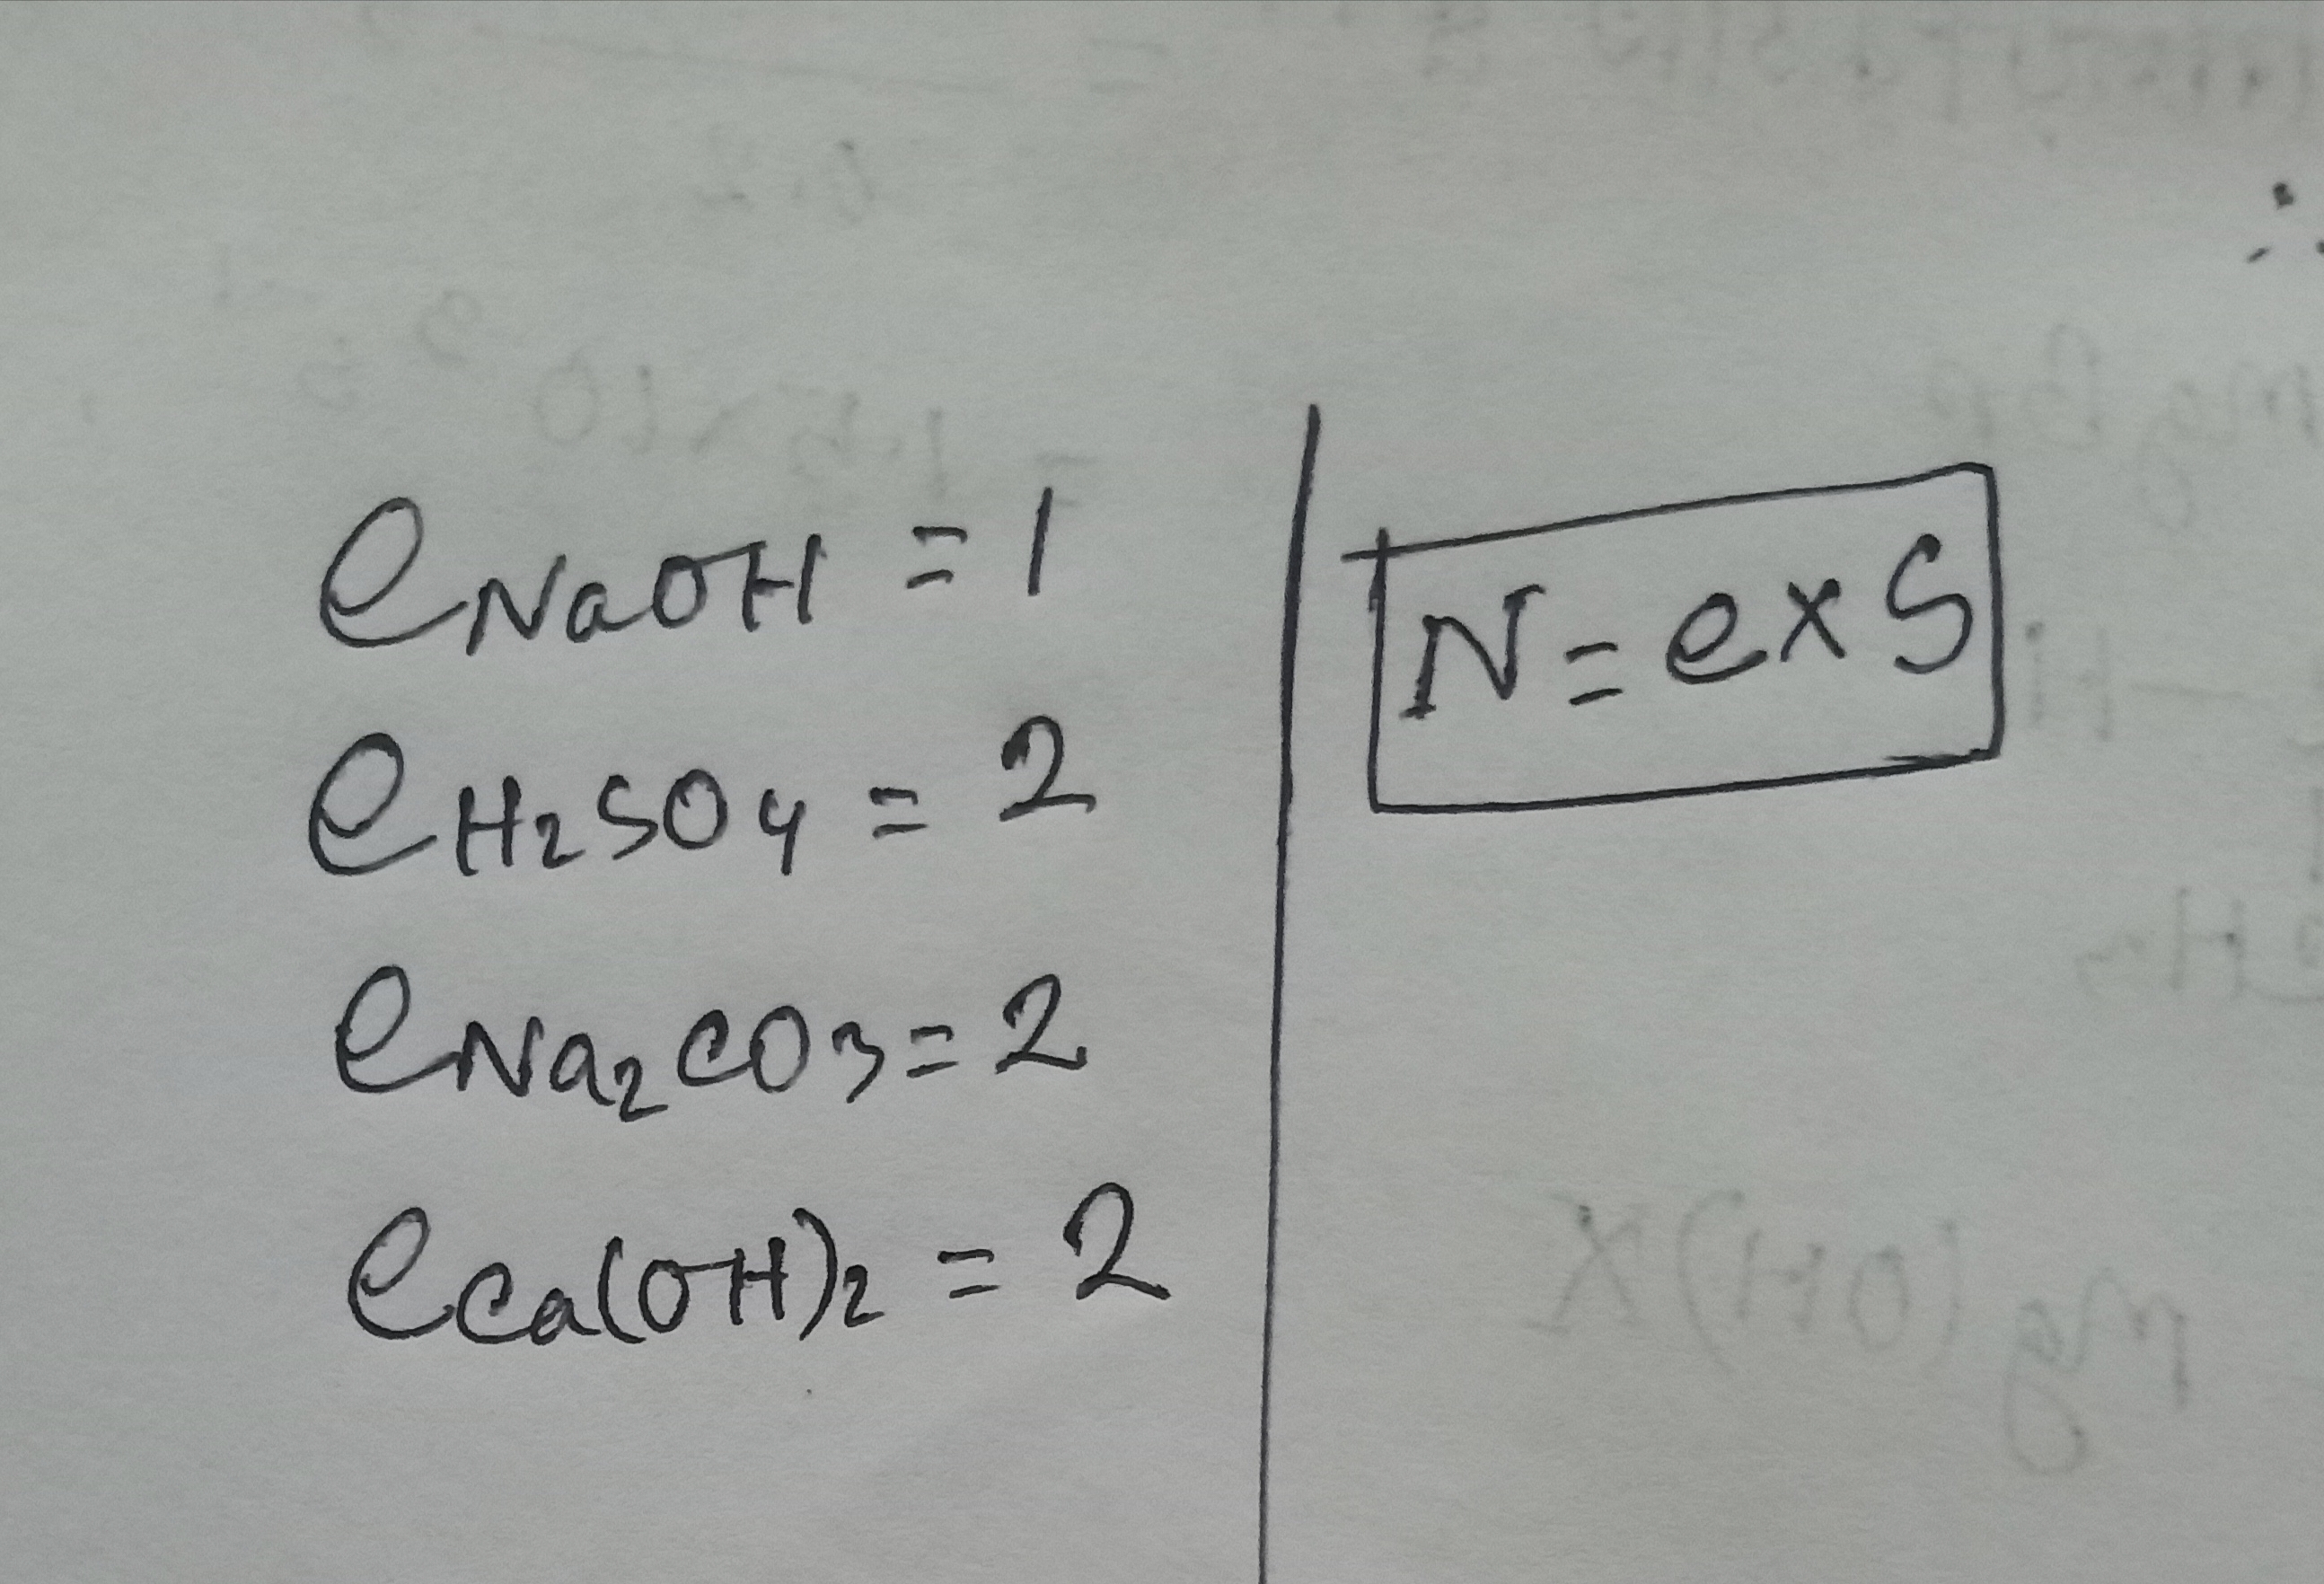 eNaOH = 1
eH2SO4 = 2
eNa2CO3 = 2
eCa(OH)2 = 2
N = e×S